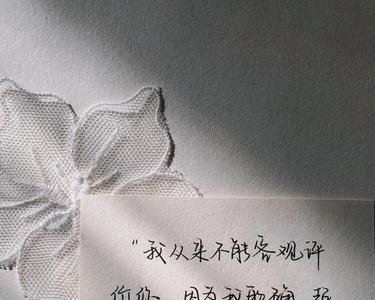 “我从来不能客观评
价你，因为我